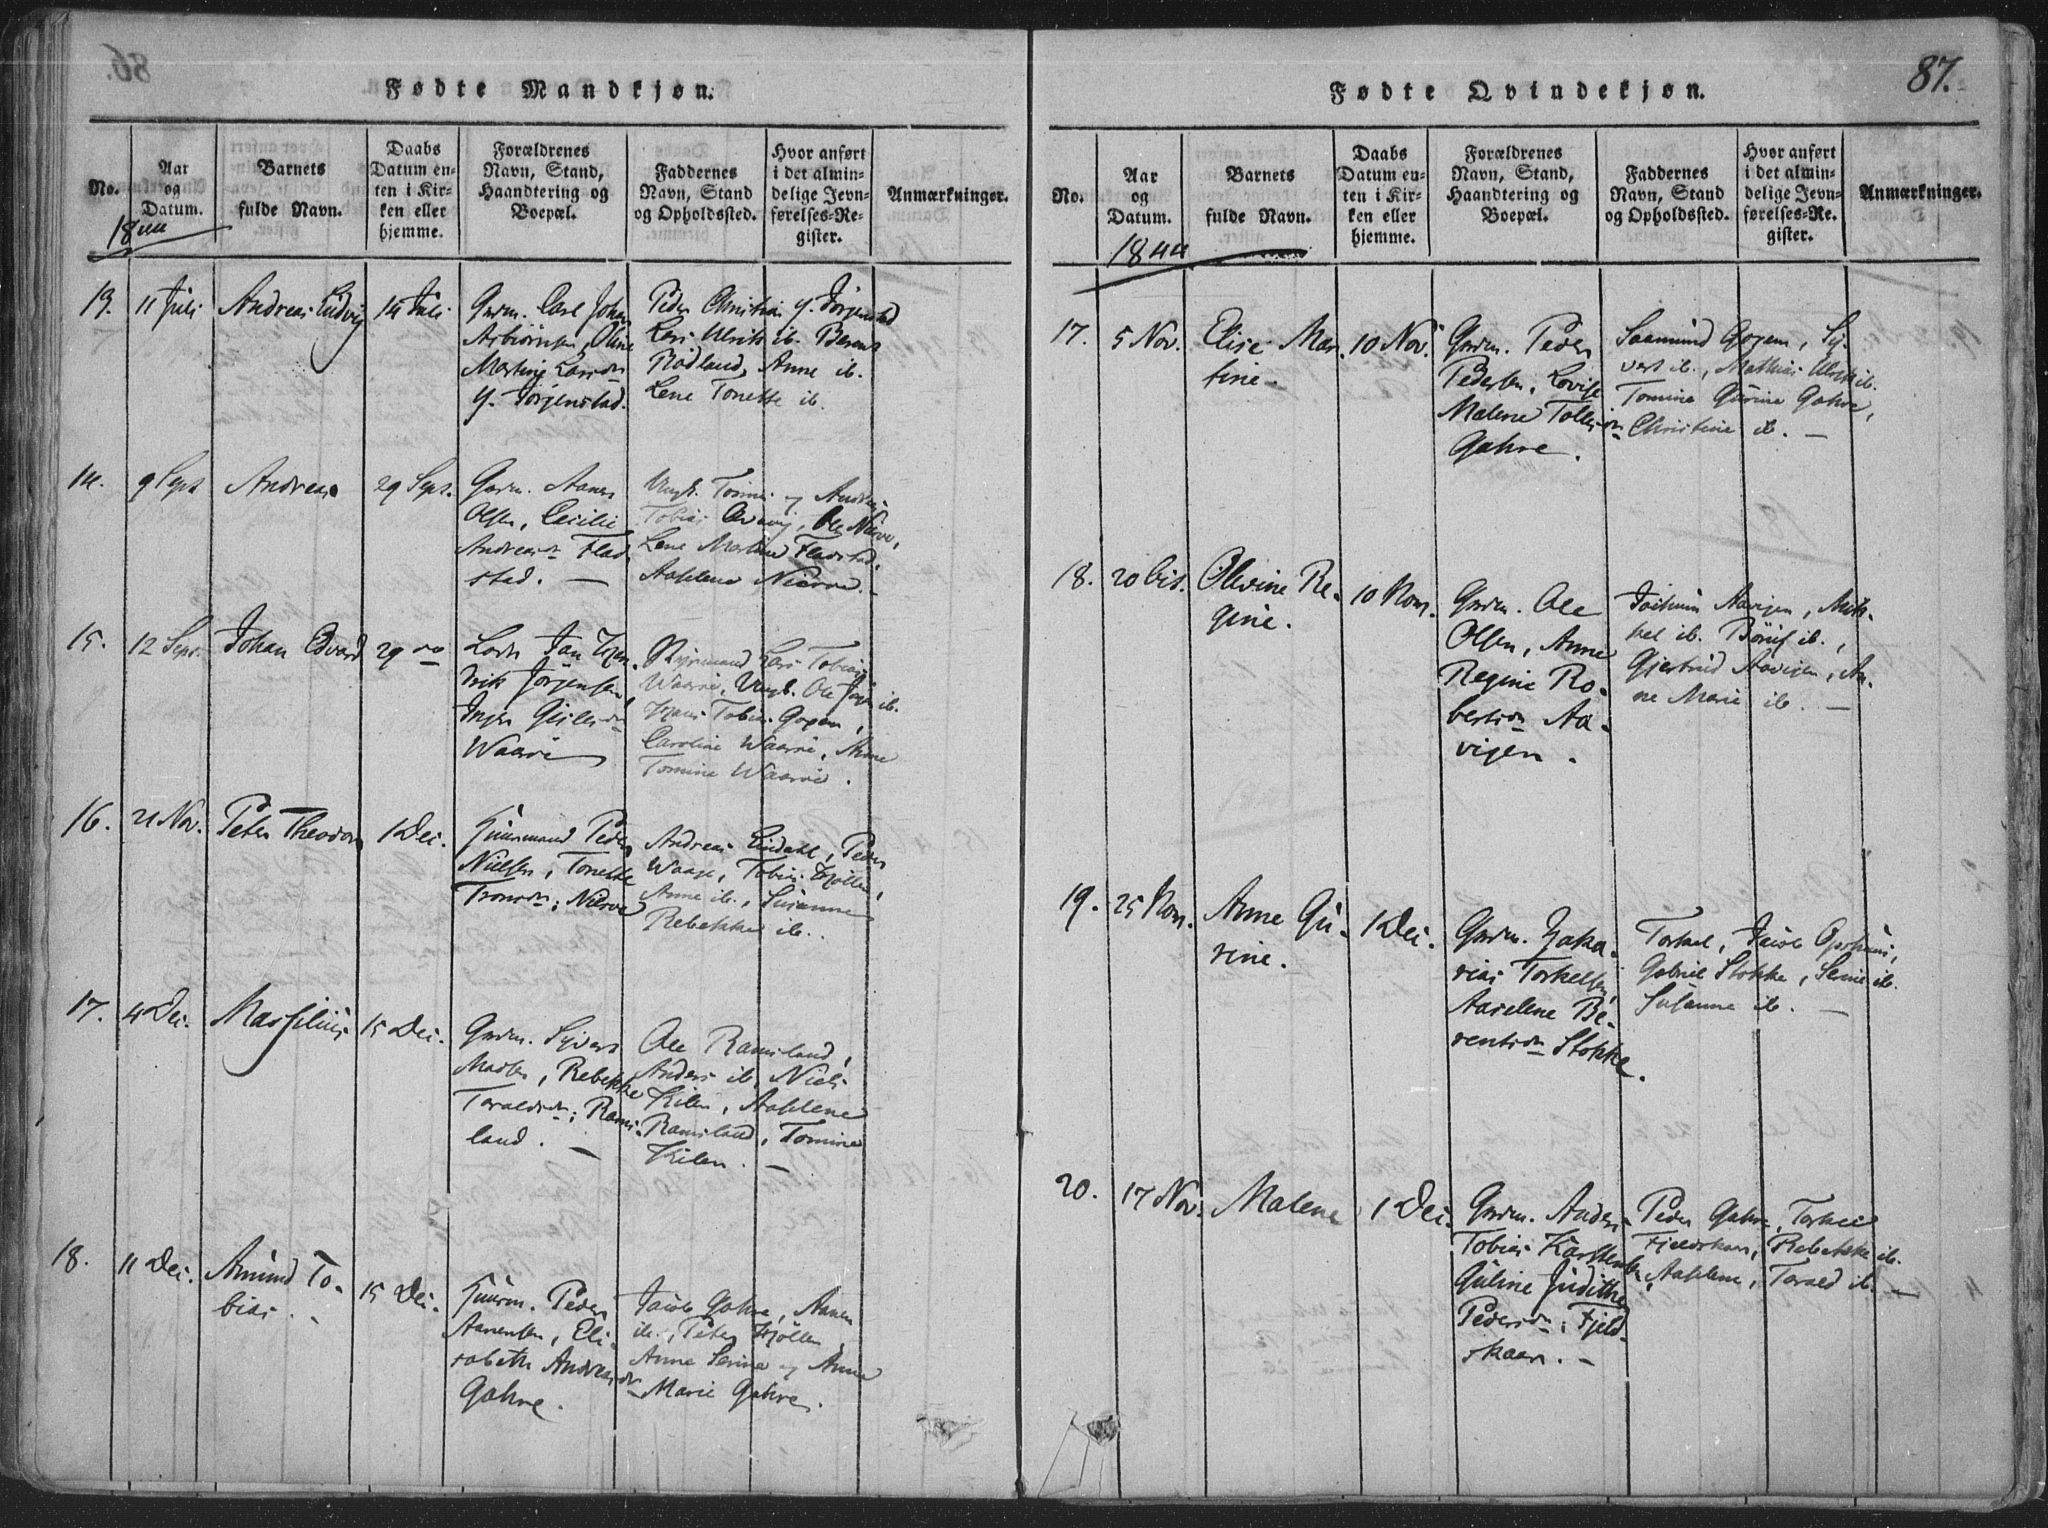 86.
Fødte Mandkjøn.
No.
Aar
og
Datum.
Barnets
fulde Navn.
Daabs
Datum en-
ten i Kir-
ken eller
hjemme.
Forældrenes
Navn, Stand,
Haandtering og
Boepæl.
Faddernes
Navn, Stand
og Opholdssted.
Hvor anført
i det almin-
delige Jevn-
førelses-Re-
gister.
Anmærkninger.
1844
13.
11 Juli
Andreas Ludvig
14 Juli
Gurm. Carl Johan
Asbiörnsen, Oline
Martine Larsdr
y. Jörgenstad.
Peder Christian y. Jörgenstad
Lars Ulrik ib. Berent
Rödland, Anne ib.
Lene Tonette ib.
14.
9 Sept
Andreas
29 Sept.
Gurm. Aanen
Olsen, Cecilie
Andreasdr Flad-
stad. —
Ungk. Tönnes og Andreas
Tobias, Ole Nærve,
Lene Martine Fladstad.
Aaslene Nærve. —
15.
12 Sept.
Johan Edvard
29 do
Jan Hen-
drik Jörgensen
Inger Gislesdr
Waarøe
Lars Tobias
Waarøe, Ungk. Ole Jörgen ib.
Hans Tobias Gogem,
Caroline Waarøe, Anne
Tomine Waarøe.
16.
21 Nov.
Peter Theodor
1 Dec.
Huusmand Peder
Nielsen, Tonette
Tronsdr; Nærve
Andreas Eindahl, Peder
Waage, Tobias Hjöllen,
Anne ib., Susanne
Rebekke ib.
17.
4 Dec.
Massilius
15 Dec.
Gurm. Sÿvert
Rebekke
Taraldsdr; Rams-
land. —
Ole Ramsland,
Anders ib, Niels
Kilen, Aaslene
Ramsland, Tomine
Kilen. —
18.
11 Dec.
Amund To-
bias. -
15 Dec.
Huusm. Peder
Aanensen, Eli-
sabeth Andreasdr
Gahre.
Jacob Gahre, Aanen
ib., Peter Hjöllen
Anne Serine og Anne
Marie Gahre.
87.
Fødte Qvindekjøn.
No.
Aar
og
Datum.
Barnets
fulde Navn.
Daabs
Datum en-
ten i Kir-
ken eller
hjemme.
Forældrenes
Navn, Stand,
Haandtering og
Boepæl.
Faddernes
Navn, Stand
og Opholdssted.
Hvor anført
i det almin-
delige Jevn-
førelses-Re-
gister.
Anmærkninger.
1844
17.
5 Nov.
Elise Mar-
tine -
10 Nov.
Gurm. Peder
Pedersen, Lovise
Malene Tollisdr
Gahre.
Saamund Gogem, Sÿ-
vert ib., Mathias Ulrik ib.
Tomine Gurine Gahre,
Christine ib. —
18.
20 Oct.
Olivine Re-
gine.
10 Nov.
Gurm. Ole
Olsen, Anne
Regine Ro-
bertsdr Aa-
vigen.
Jochum Aavigen, Mik-
kel ib. Böruf ib.,
Gjertrud Aavigen, An-
ne Marie ib. —
19.
25 Nov.
Anne Gu-
rine.
1 Dec.
Gurm. Zaka-
rias Torkelsen,
Aaselene Be-
rentsdr Stokke.
Torkel, Jacob Opshuus,
Gabriel Stokke, Serine ib.
Susanne ib. —
20.
17 Nov.
Malene
1 Dec.
Gurm. Anders
Tobias Karstensen
Guline Judithe
Pedersdr; Fjeld-
skaar. —
Peder Gahre, Torkel
Fjeldskaar, Rebekke ib.
Aaslene, Tarald ib. —